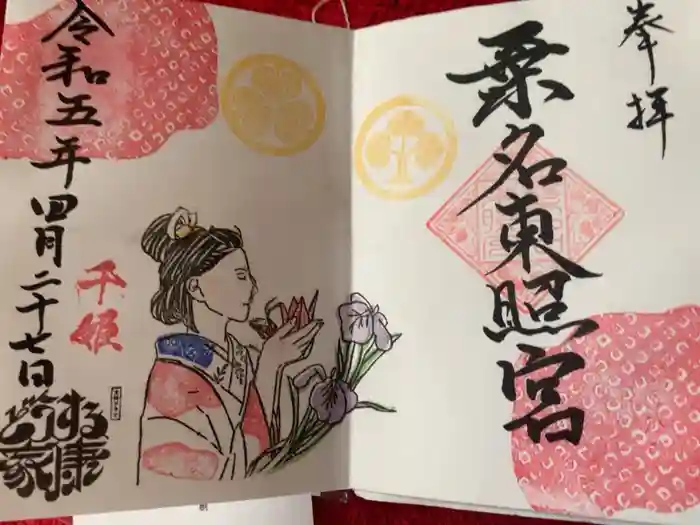 奉拝
桑名東照宮
令和五年四月二十七日
千姫
どうする家康